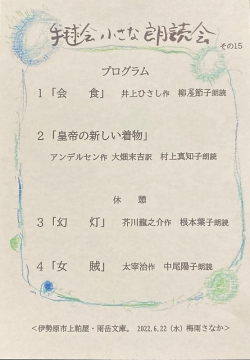 手毬会 小さな朗読会
その15
プログラム
1「会　食」 井上ひさし作 柳屋節子朗読
2「皇帝の新しい着物」
アンデルセン作 大畑末吉訳 村上真知子朗読
休　憩
3「幻　灯」 芥川龍之介作 根本葉子朗読
4「女　賊」 太宰治作 中尾陽子朗読
＜伊勢原市上粕屋・雨岳文庫。 2022.6.22（水）梅雨さなか＞